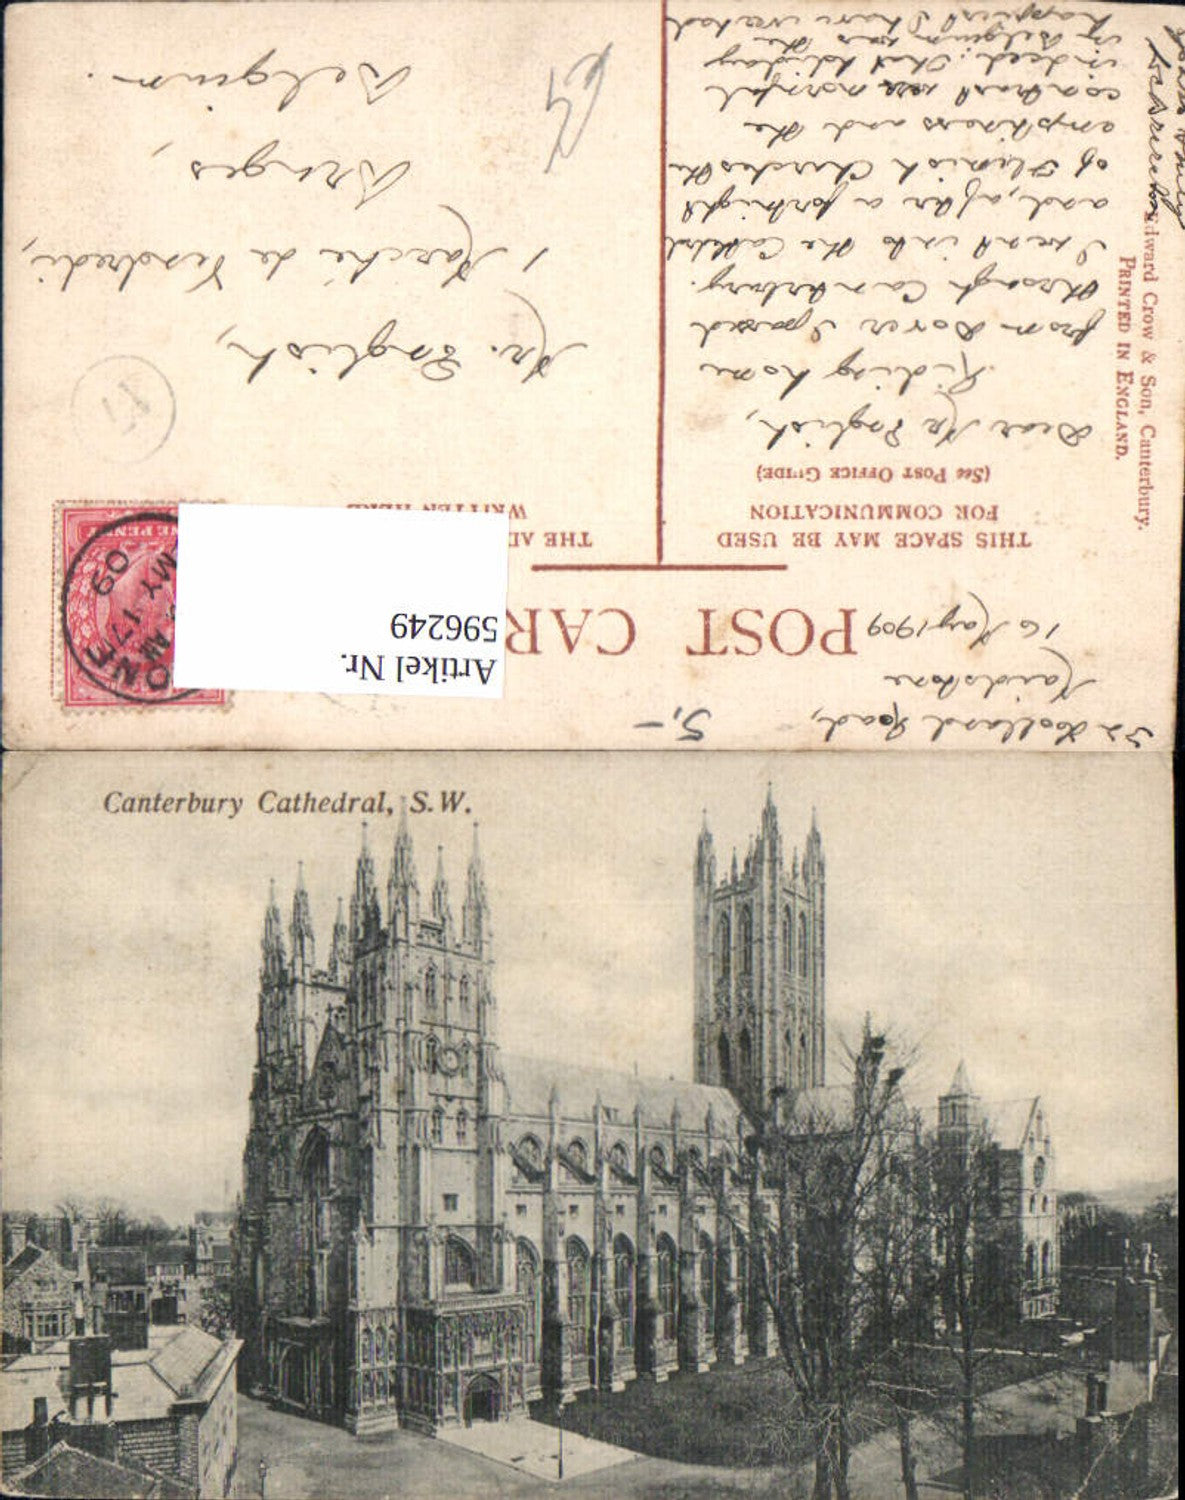 32 Holland Road,
Maidstone
16 May 1909
POST CAR
THIS SPACE MAY BE USED
FOR COMMUNICATION
(See POST OFFICE GUIDE)
THE AD
WRITTEN HERE
Dear Mr English,
Riding home
from Dover I passed
through Canterbury.
I went into the Cathedral
and, after a fortnight
of Flemish Churches the
emptiness and the
contrast was mournful
indeed. That holiday
in Belgium was the
happiest I have ever had
Mr. English,
1 Marché de Vendredi,
Bruges,
Belgium.
Edward Crow & Son, Canterbury.
PRINTED IN ENGLAND.
NE PENNY
ONE
AM
MY 17
09
Artikel Nr.
596249
5,-
Canterbury Cathedral, S.W.